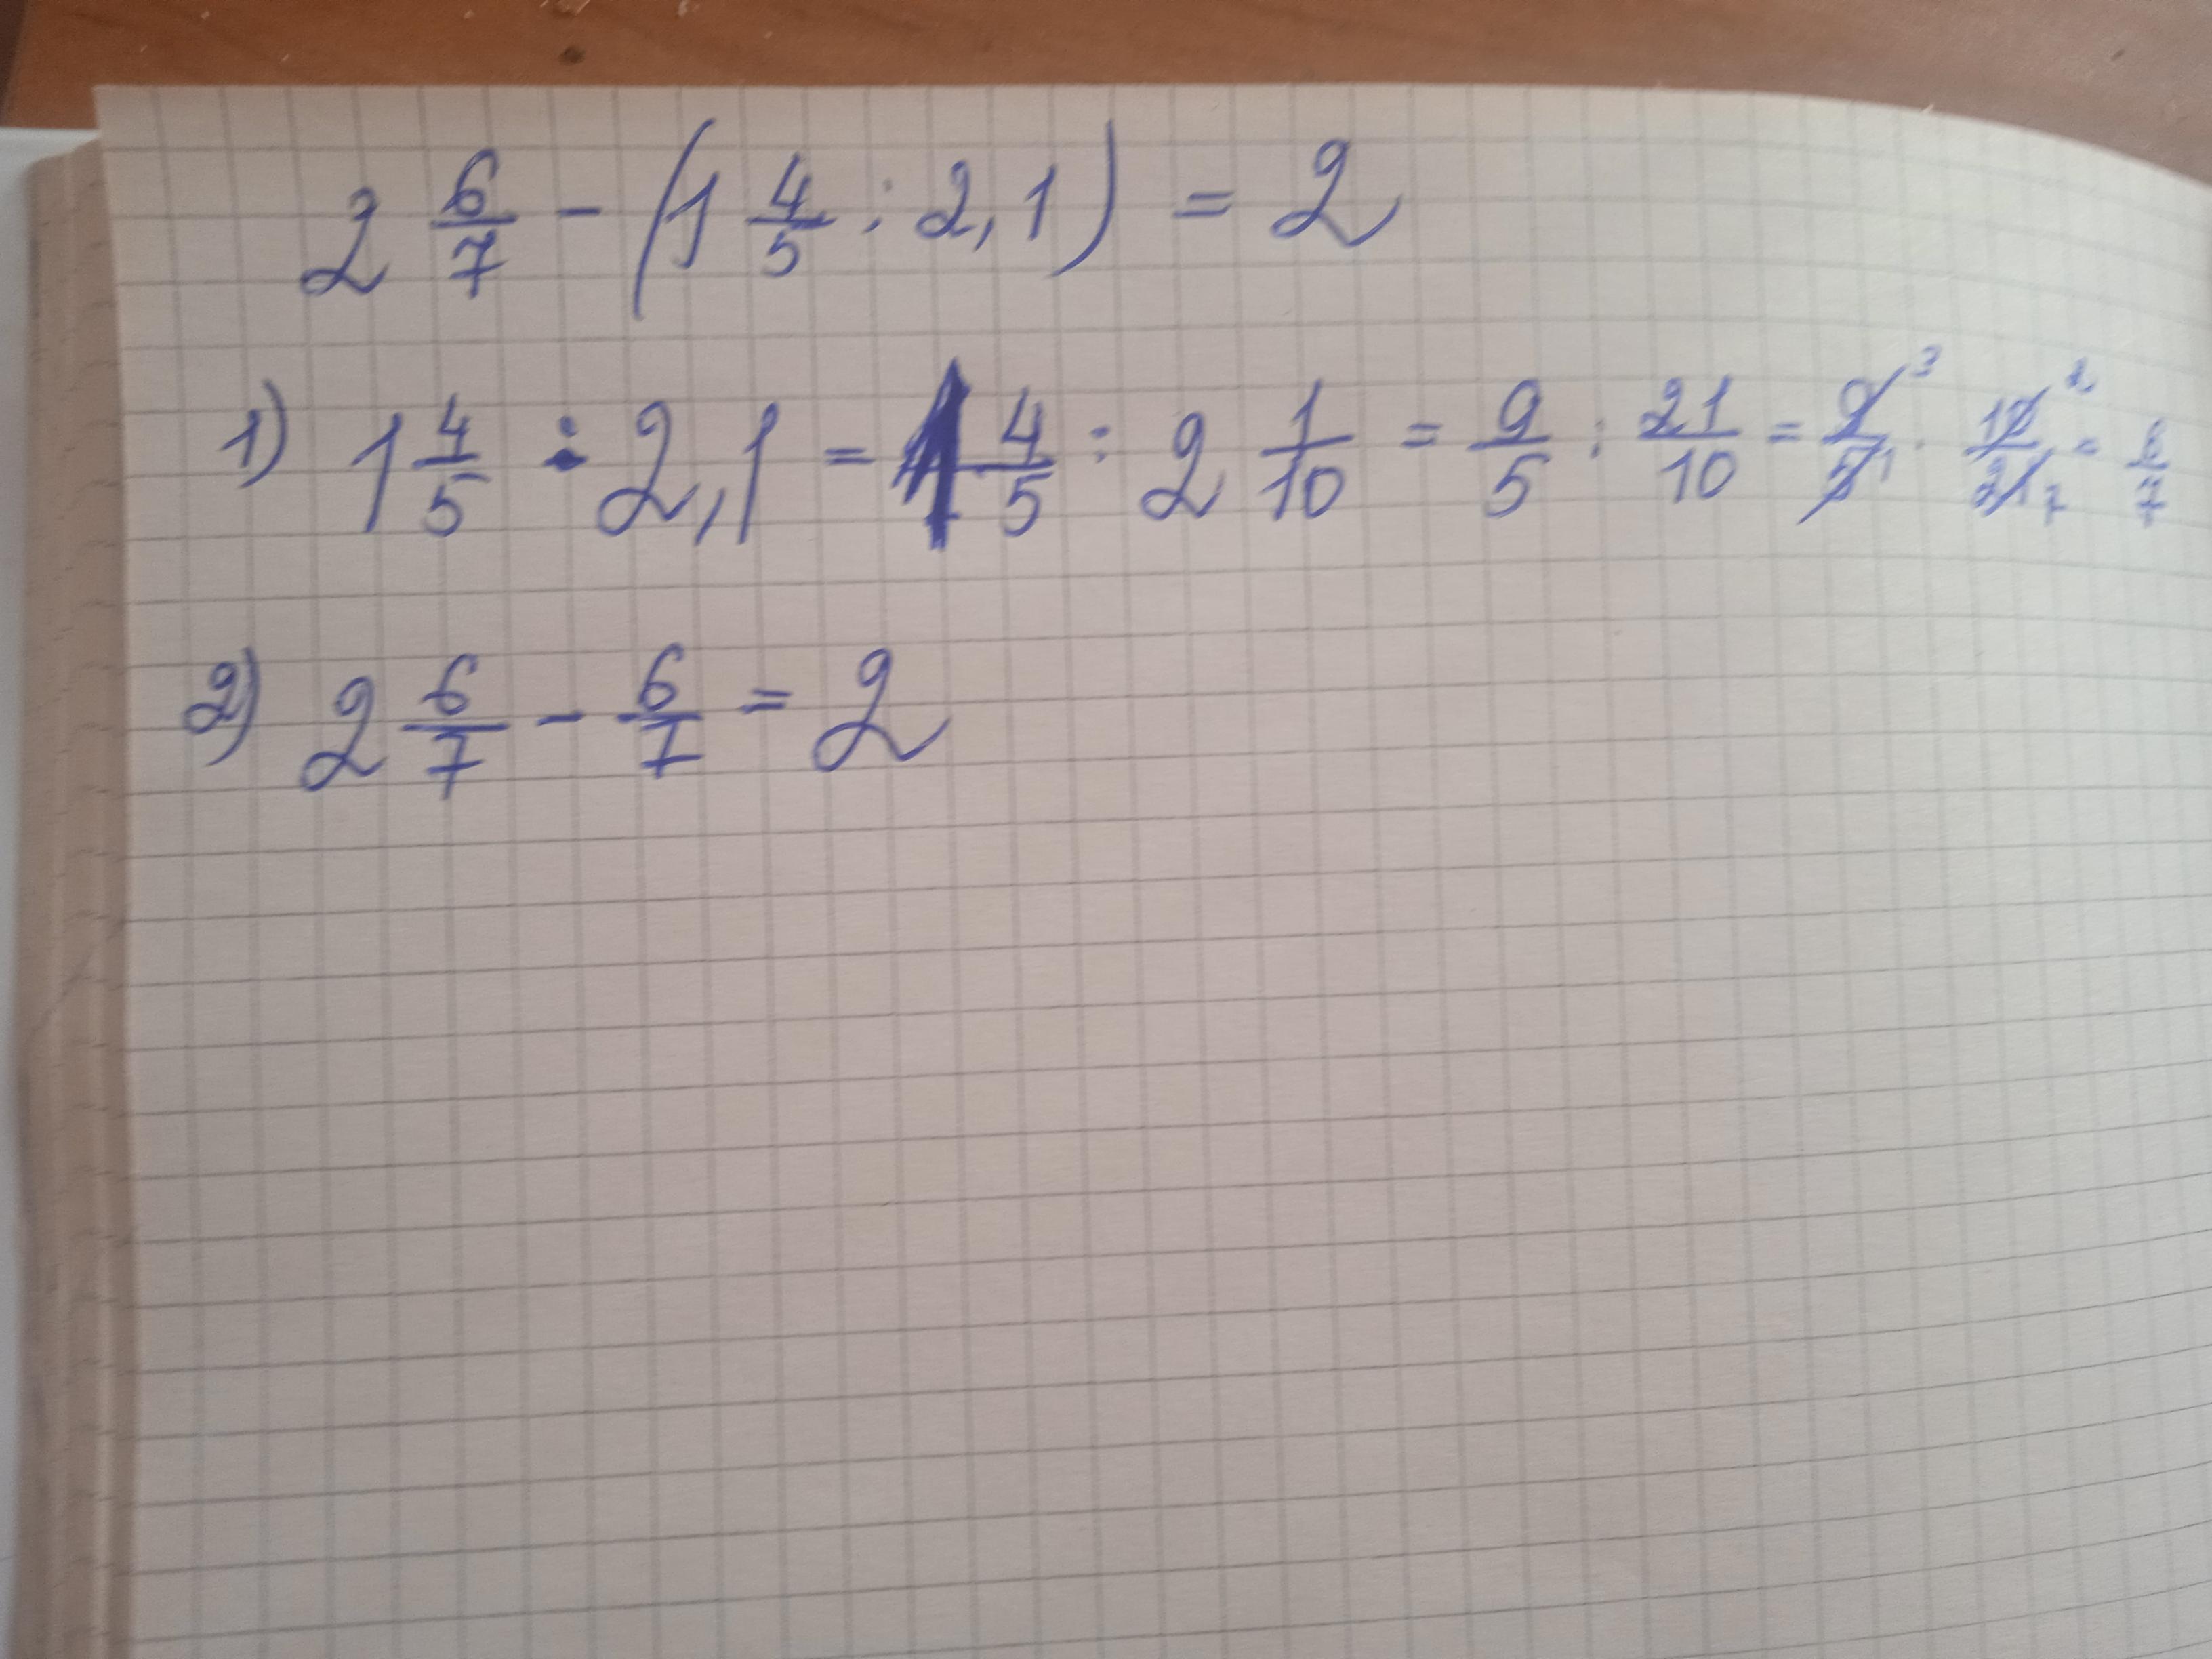 2 6/7 - (1 4/5 : 2,1) = 2
1) 1 4/5 : 2,1 = 1 4/5 : 2 1/10 = 9/5 : 21/10 = 9/5 3 1 · 10/21 2 7 = 6/7
2) 2 6/7 - 6/7 = 2